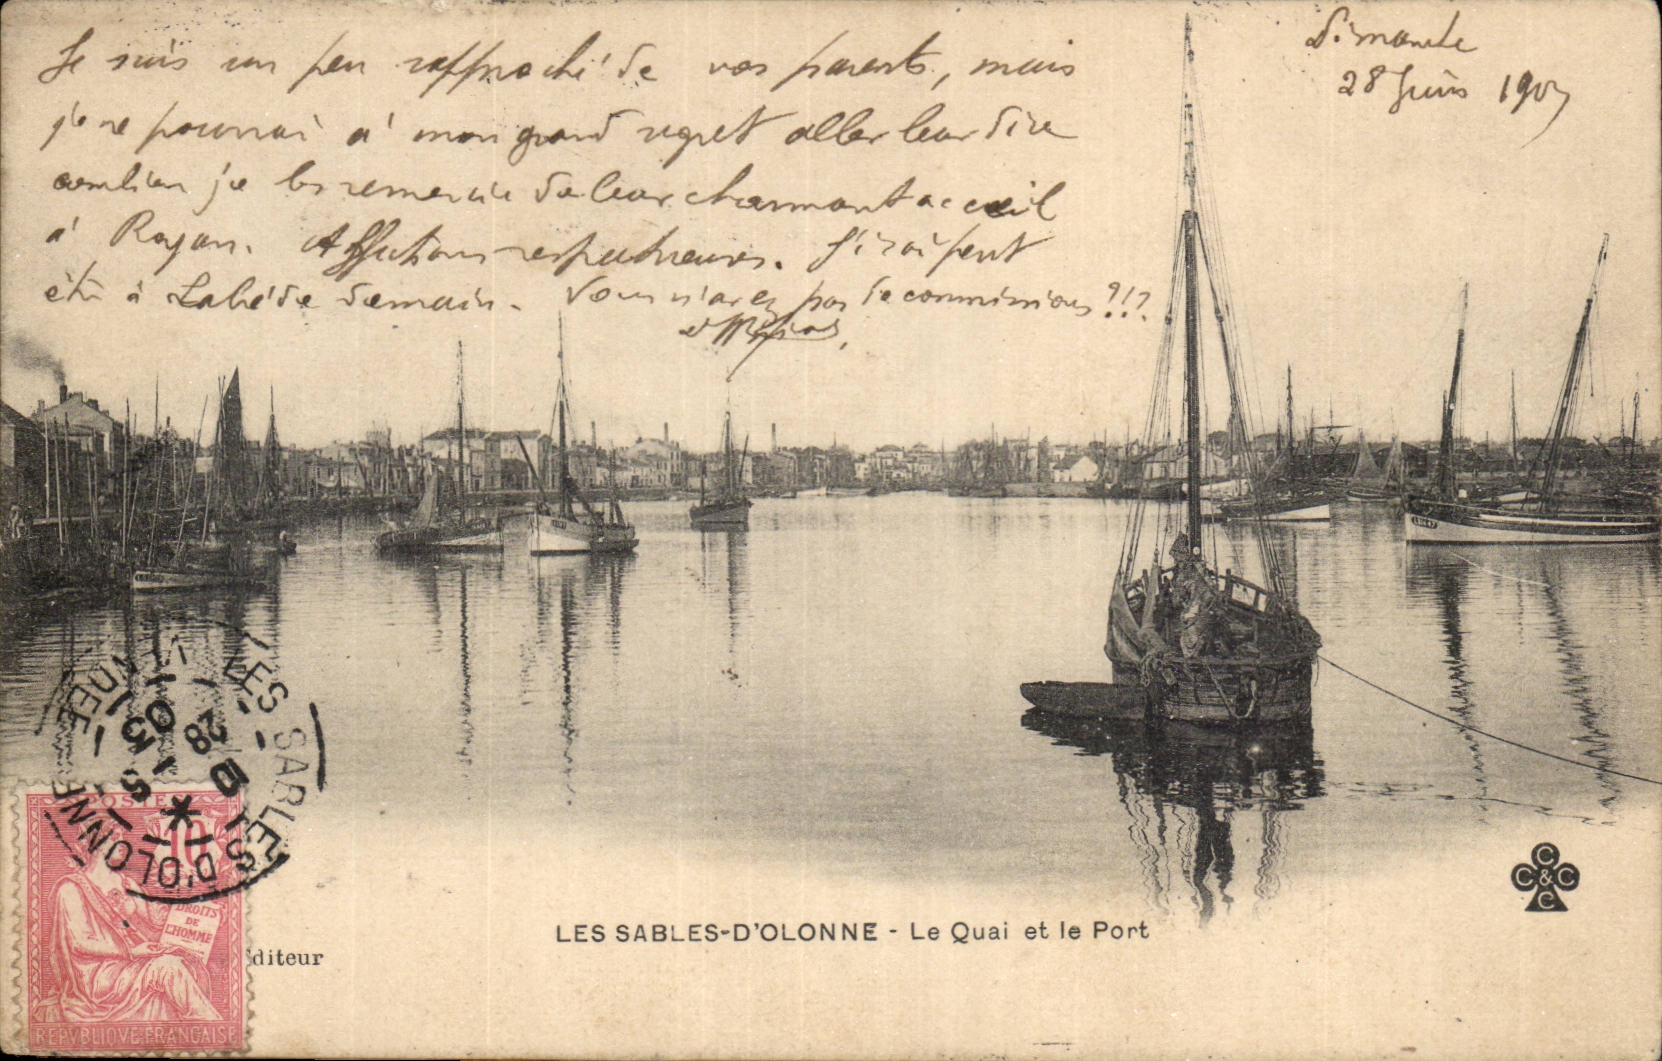 Dimanche
28 Juin 1903
Je suis un peu rapproché de vos parents, mais
je ne pourrai à mon grand regret aller leur dire
combien je les remercie de leur charmant accueil
à Royan. Affections respectueuses. J'irai peut
être à demain. Vous n'avez pas de commissions ?!?
LES SABLES D'OLONNE
VENDEE
28
03
POSTES
10
DROITS
DE
L'HOMME
REPVBLIQVE FRANÇAISE
diteur
LES SABLES-D'OLONNE - Le Quai et le Port
C
C & C
C